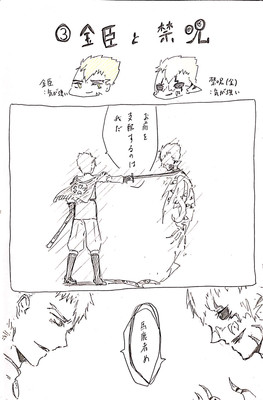 ③金臣と禁呪
金臣
:気が強い
禁呪(金)
:気が強い
お前を
支配するのは
我だ
馬鹿者め